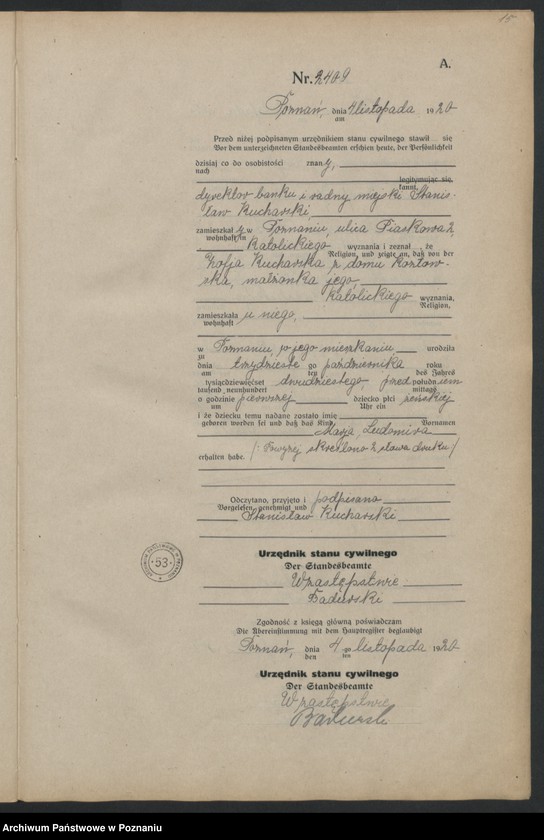 15
A.
Nr. 2409
Poznań, dnia 4 listopada 1920
am
Przed niżej podpisanym urzędnikiem stanu cywilnego stawił się
Vor dem unterzeichneten Standesbeamten erschien heute, der Persönlichkeit
dzisiaj co do osobistości znany,
nach
legitymując się,
kannt,
dyrektor banku i radny miejski Stanis-
ław Kucharski
zamieszkały w Poznaniu, ulica Piaskowa 2,
wohnhaft in
katolickiego wyznania i zeznał, że
Religion, und zeigte an, daß von der
Zofja Kucharska z domu Kozłow-
ska, małżonka jego,
katolickiego wyznania,
Religion,
zamieszkała u niego,
wohnhaft
w Poznaniu, w jego mieszkaniu urodziła
zu
dnia trzydziestego października roku
am ten des Jahres
tysiącdziewięćset dwudziestego, przed południem
tausend neunhundert mittags
o godzinie pierwszej dziecko płci żeńskiej
um Uhr ein
i że dziecku temu nadane zostało imię
geboren worden sei und daß das Kind Vornamen
Marja, Ludomira
erhalten habe. /: Powyżej skreślono 2 słowa druku /
Odczytano, przyjęto i podpisano
Vorgelesen, genehmigt und
Stanisław Kucharski
Urzędnik stanu cywilnego
Der Standesbeamte
W zastępstwie
Zgodność z księgą główną poświadczam
Die Übereinstimmung mit dem Hauptregister beglaubigt
Poznań, dnia 4 go listopada 1920
den ten
Urzędnik stanu cywilnego
Der Standesbeamte
W zastępstwie
ARCHIWUM PAŃSTWOWE W POZNANIU
53
Archiwum Państwowe w Poznaniu